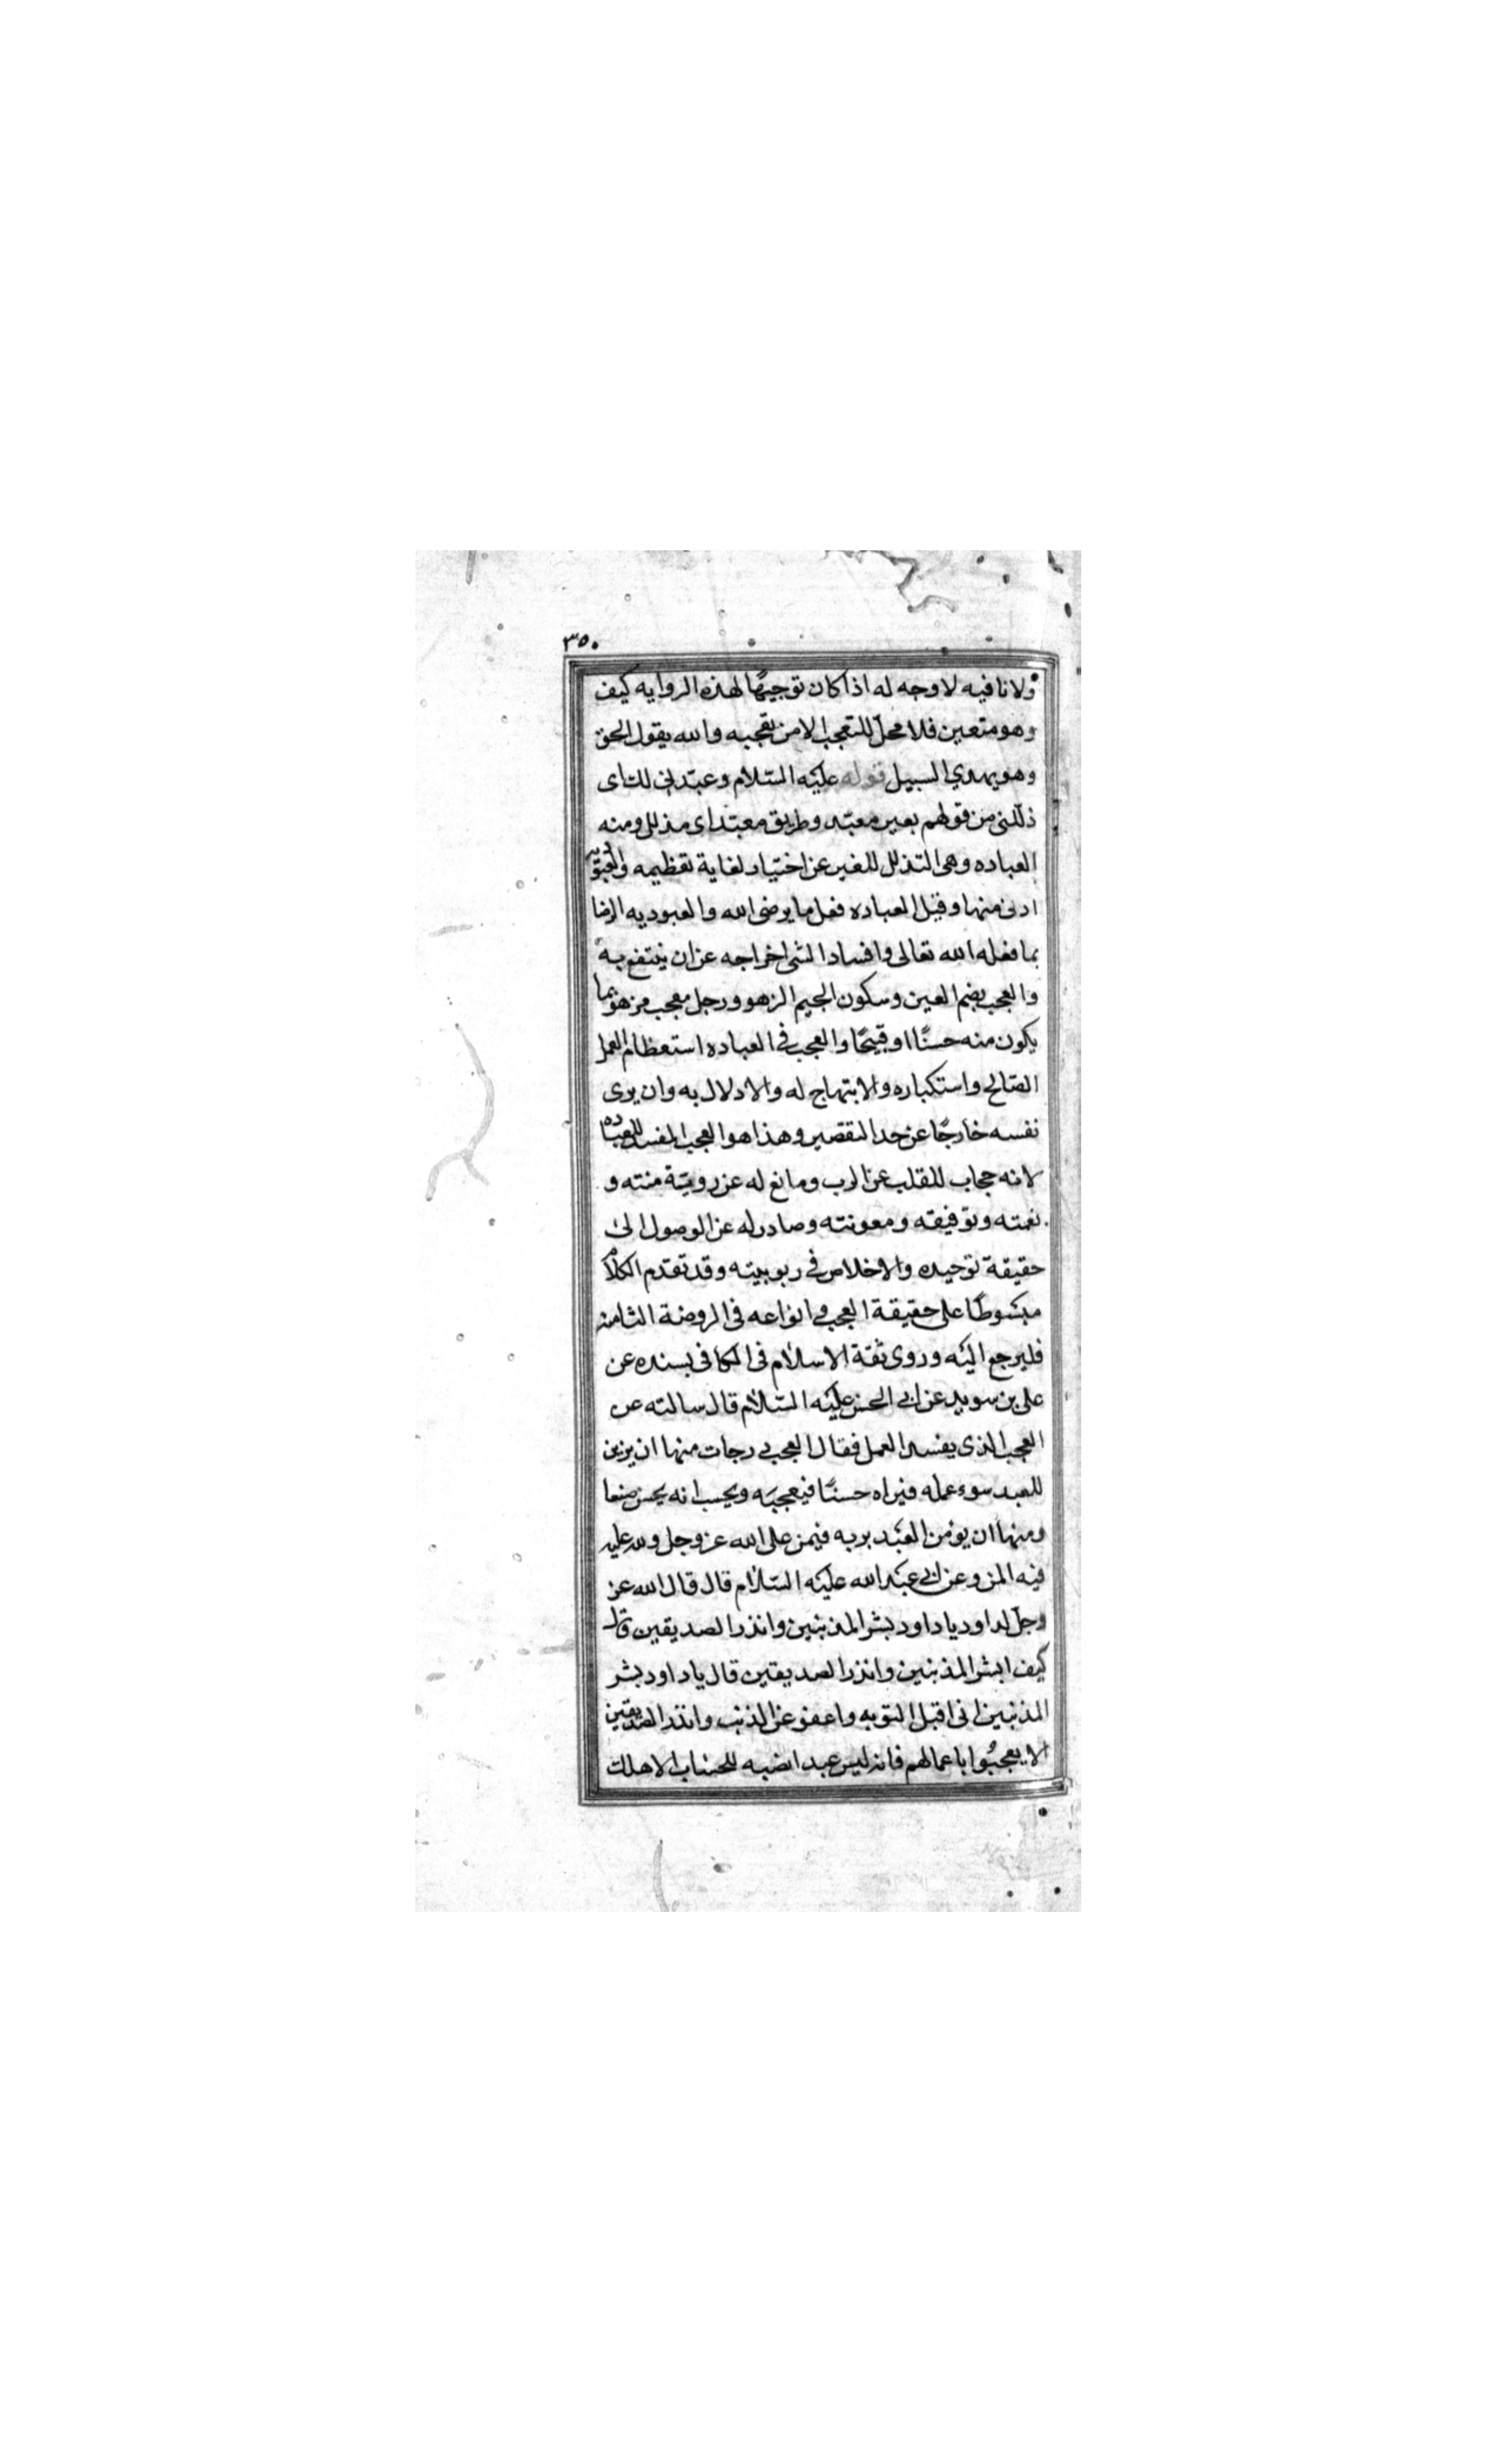 ٣٥٠
ولا نافيه لا وجه له اذا كان توجيهًا لهذه الروايه كيف
وهو متعين فلا محلّ للتعجب الا من تعجبه والله يقول الحق
وهو يهدي السبيل قوله عليه السّلام وعبّدني لك اى
ذلّلنى من قولهم بعير معبّد وطريق معبّد اى مذلل ومنه
العباده وهى التذلل للغير عن اختيار لغاية تعظيمه والعبوديه
ادنى منها وقيل العباده فعل ما يرضى الله والعبوديه الرضا
بما فعله الله تعالى وافساد الشى اخراجه عن ان ينتفع به
والعجب بضم العين وسكون الجيم الزهو ورجل معجب مزهو بما
يكون منه حسنًا او قبيحًا والعجب فى العباده استعظام العمل
الصّالح واستكباره والابتهاج له والادلال به وان يرى
نفسه خارجًا عن حد التقصير وهذا هو العجب المفسد للعباده
لانه حجاب للقلب عن الرب ومانع له عن روية منته و
نعمته وتوفيقه ومعونته وصادر له عن الوصول الى
حقيقة توحيده والاخلاص فى ربوبيته وقد تقدم الكلام
مبسوطًا على حقيقة العجب وانواعه فى الروضة الثامنه
فليرجع اليه وروى ثقة الاسلام فى الكافى بسنده عن
على بن سويد عن ابى الحسن عليه السّلام قال سالته عن
العجب الذى يفسد العمل فقال العجب درجات منها ان يزين
للعبد سوء عمله فيراه حسنًا فيعجبه ويحسب انه يحسن صنعا
ومنها ان يؤمن العبد بربه فيمن على الله عز وجل ولله عليه
فيه المن وعن ابى عبد الله عليه السّلام قال قال الله عز
وجلّ لداود يا داود بشر المذنبين وانذر الصديقين قال
كيف ابشر المذنبين وانذر الصديقين قال يا داود بشر
المذنبين انى اقبل التوبه واعفو عن الذنب وانذر الصديقين
الا يعجبُوا باعمالهم فانه ليس عبد انصبه للحساب الا هلك